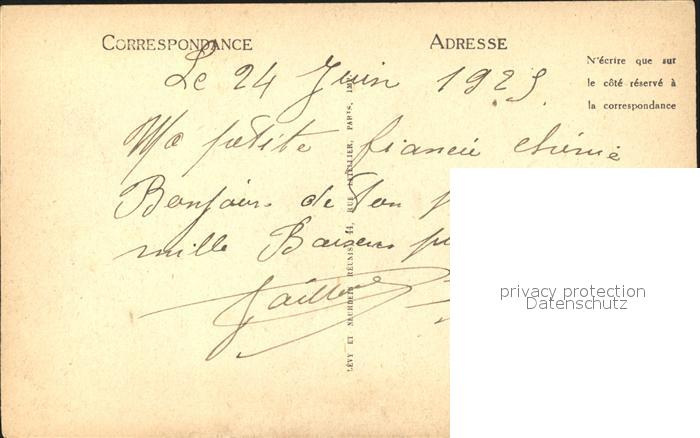 CORRESPONDANCE
ADRESSE
N'écrire que sur
le côté réservé à
la correspondance
Le 24 Juin 1925
Ma petite fiancée chérie
Bonjour de ton
mille Baisers
LÉVY ET NEURDEIN RÉUNIS, 44, RUE LETELLIER, PARIS, IMP.
privacy protection
Datenschutz